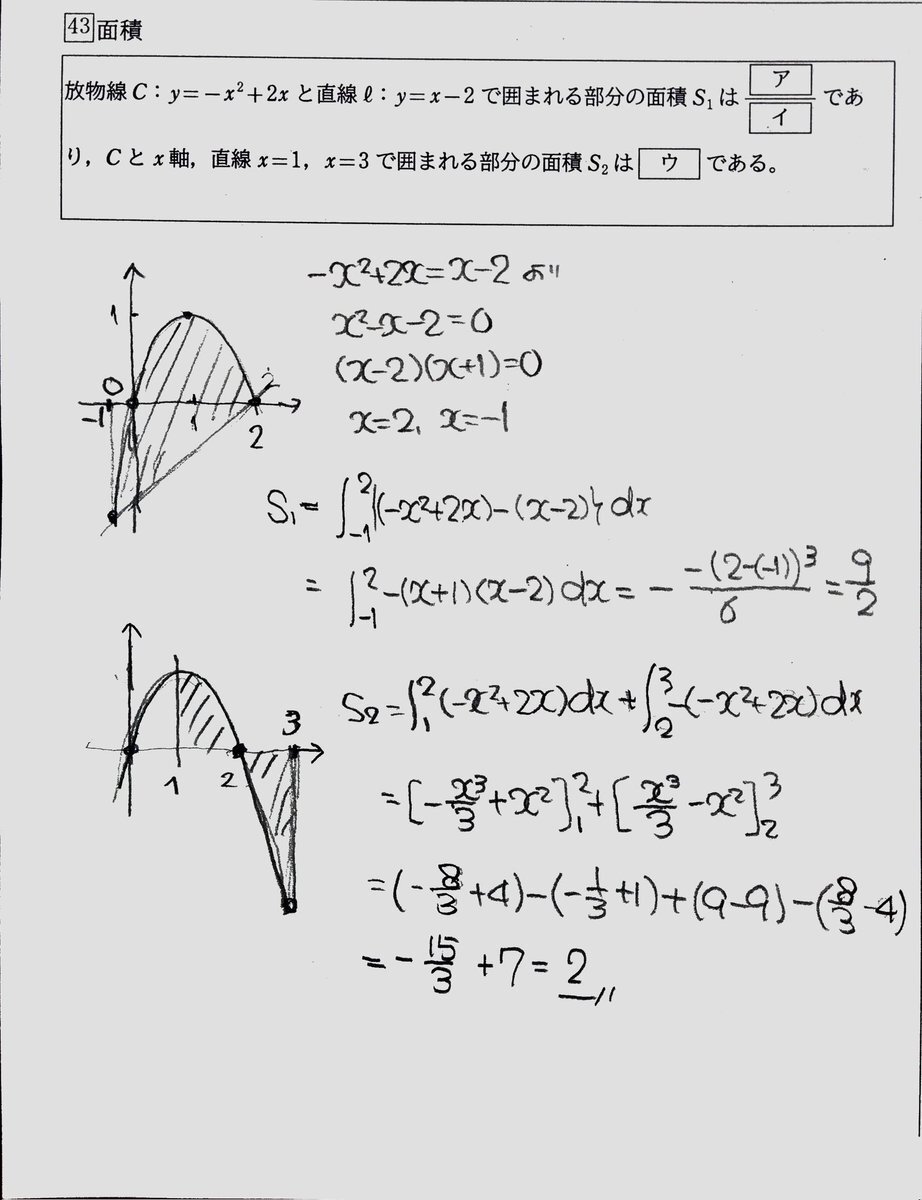 43 面積
放物線 C：y=−x²+2x と直線 ℓ：y=x−2 で囲まれる部分の面積 S₁ は ア/イ であ
り，C と x 軸，直線 x=1，x=3 で囲まれる部分の面積 S₂ は ウ である。
−x²+2x=x−2 より
x²−x−2=0
(x−2)(x+1)=0
x=2, x=−1
1
0
2
−1
1
2
S₁=∫₋₁²{(−x²+2x)−(x−2)}dx
=∫₋₁²−(x+1)(x−2)dx=−−(2−(−1))³/6=9/2
S₂=∫₁²(−x²+2x)dx+∫₂³−(−x²+2x)dx
3
1
2
=[−x³/3+x²]₁²+[x³/3−x²]₂³
=(−8/3+4)−(−1/3+1)+(9−9)−(8/3−4)
=−15/3+7=2